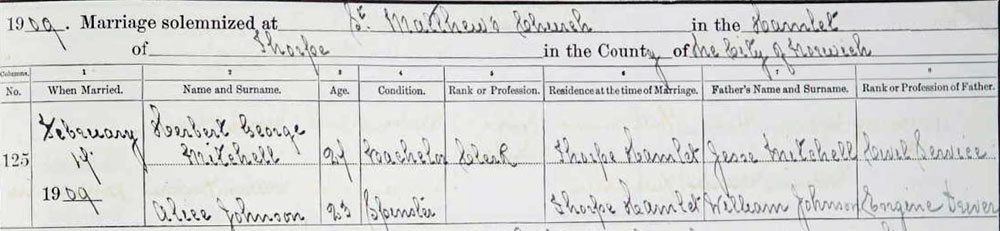 1909. Marriage solemnized at St. Matthew's Church in the Hamlet
of Thorpe in the County of the City of Norwich
Columns. 1 2 3 4 5 6 7 8
No. When Married. Name and Surname. Age. Condition. Rank or Profession. Residence at the time of Marriage. Father's Name and Surname. Rank or Profession of Father.
February Herbert George
125 Mitchell Bachelor Clerk Thorpe Hamlet Jesse Mitchell Civil Service
1909
Alice Johnson 23 Spinster Thorpe Hamlet William Johnson Engine Driver